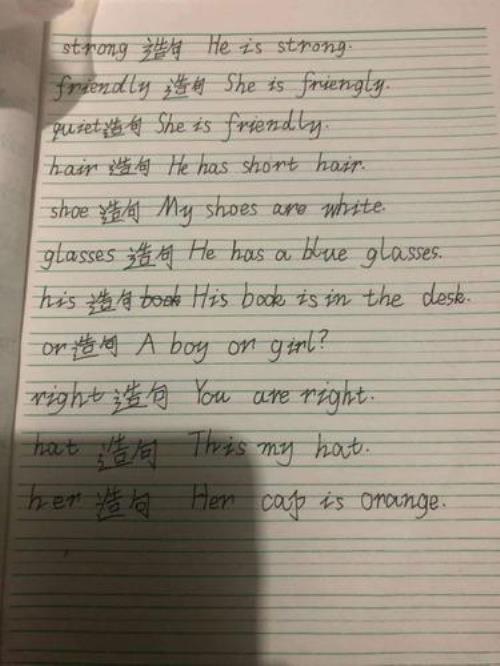 strong 造句 He is strong.
friendly 造句 She is friengly.
quiet造句 She is friendly.
hair 造句 He has short hair.
shoe 造句 My shoes are white.
glasses 造句 He has a blue glasses.
his 造句 book His book is in the desk.
or造句 A boy or girl?
right 造句 You are right.
hat 造句 This my hat.
her 造句 Her cap is orange.